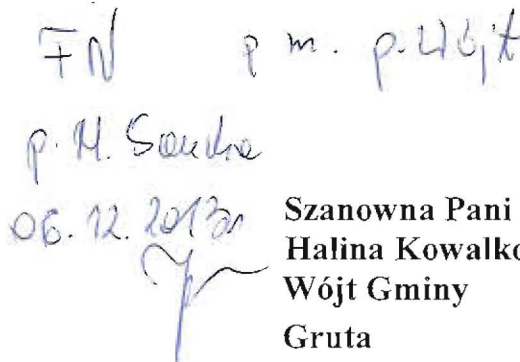 FN p m. p. Wójt
p. M.
06.12.2013r
Szanowna Pani
Halina Kowalko
Wójt Gminy
Gruta